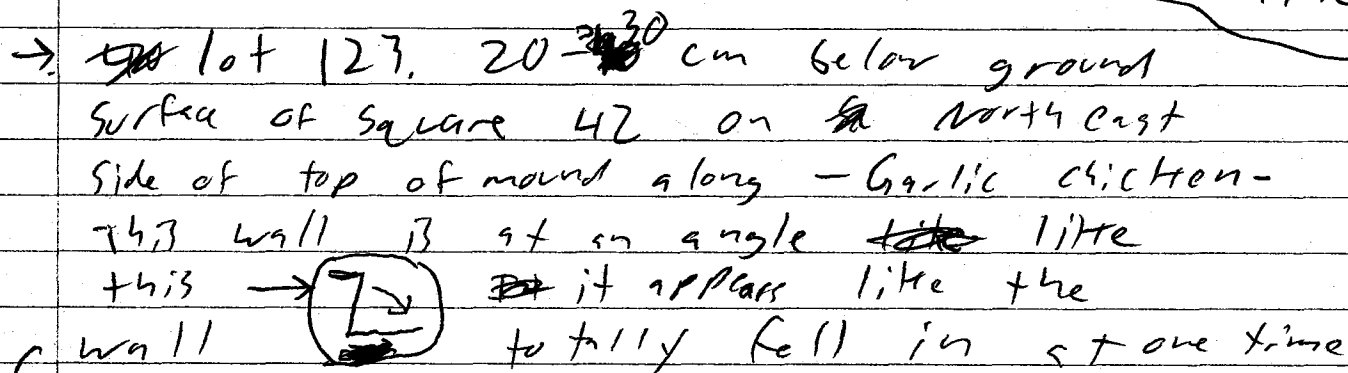 → lot 123. 20-30 cm below ground
surface of square 42 on North east
side of top of mound along - Garlic chicken-
this wall is at an angle like
this → it appears like the
wall totally fell in at one time